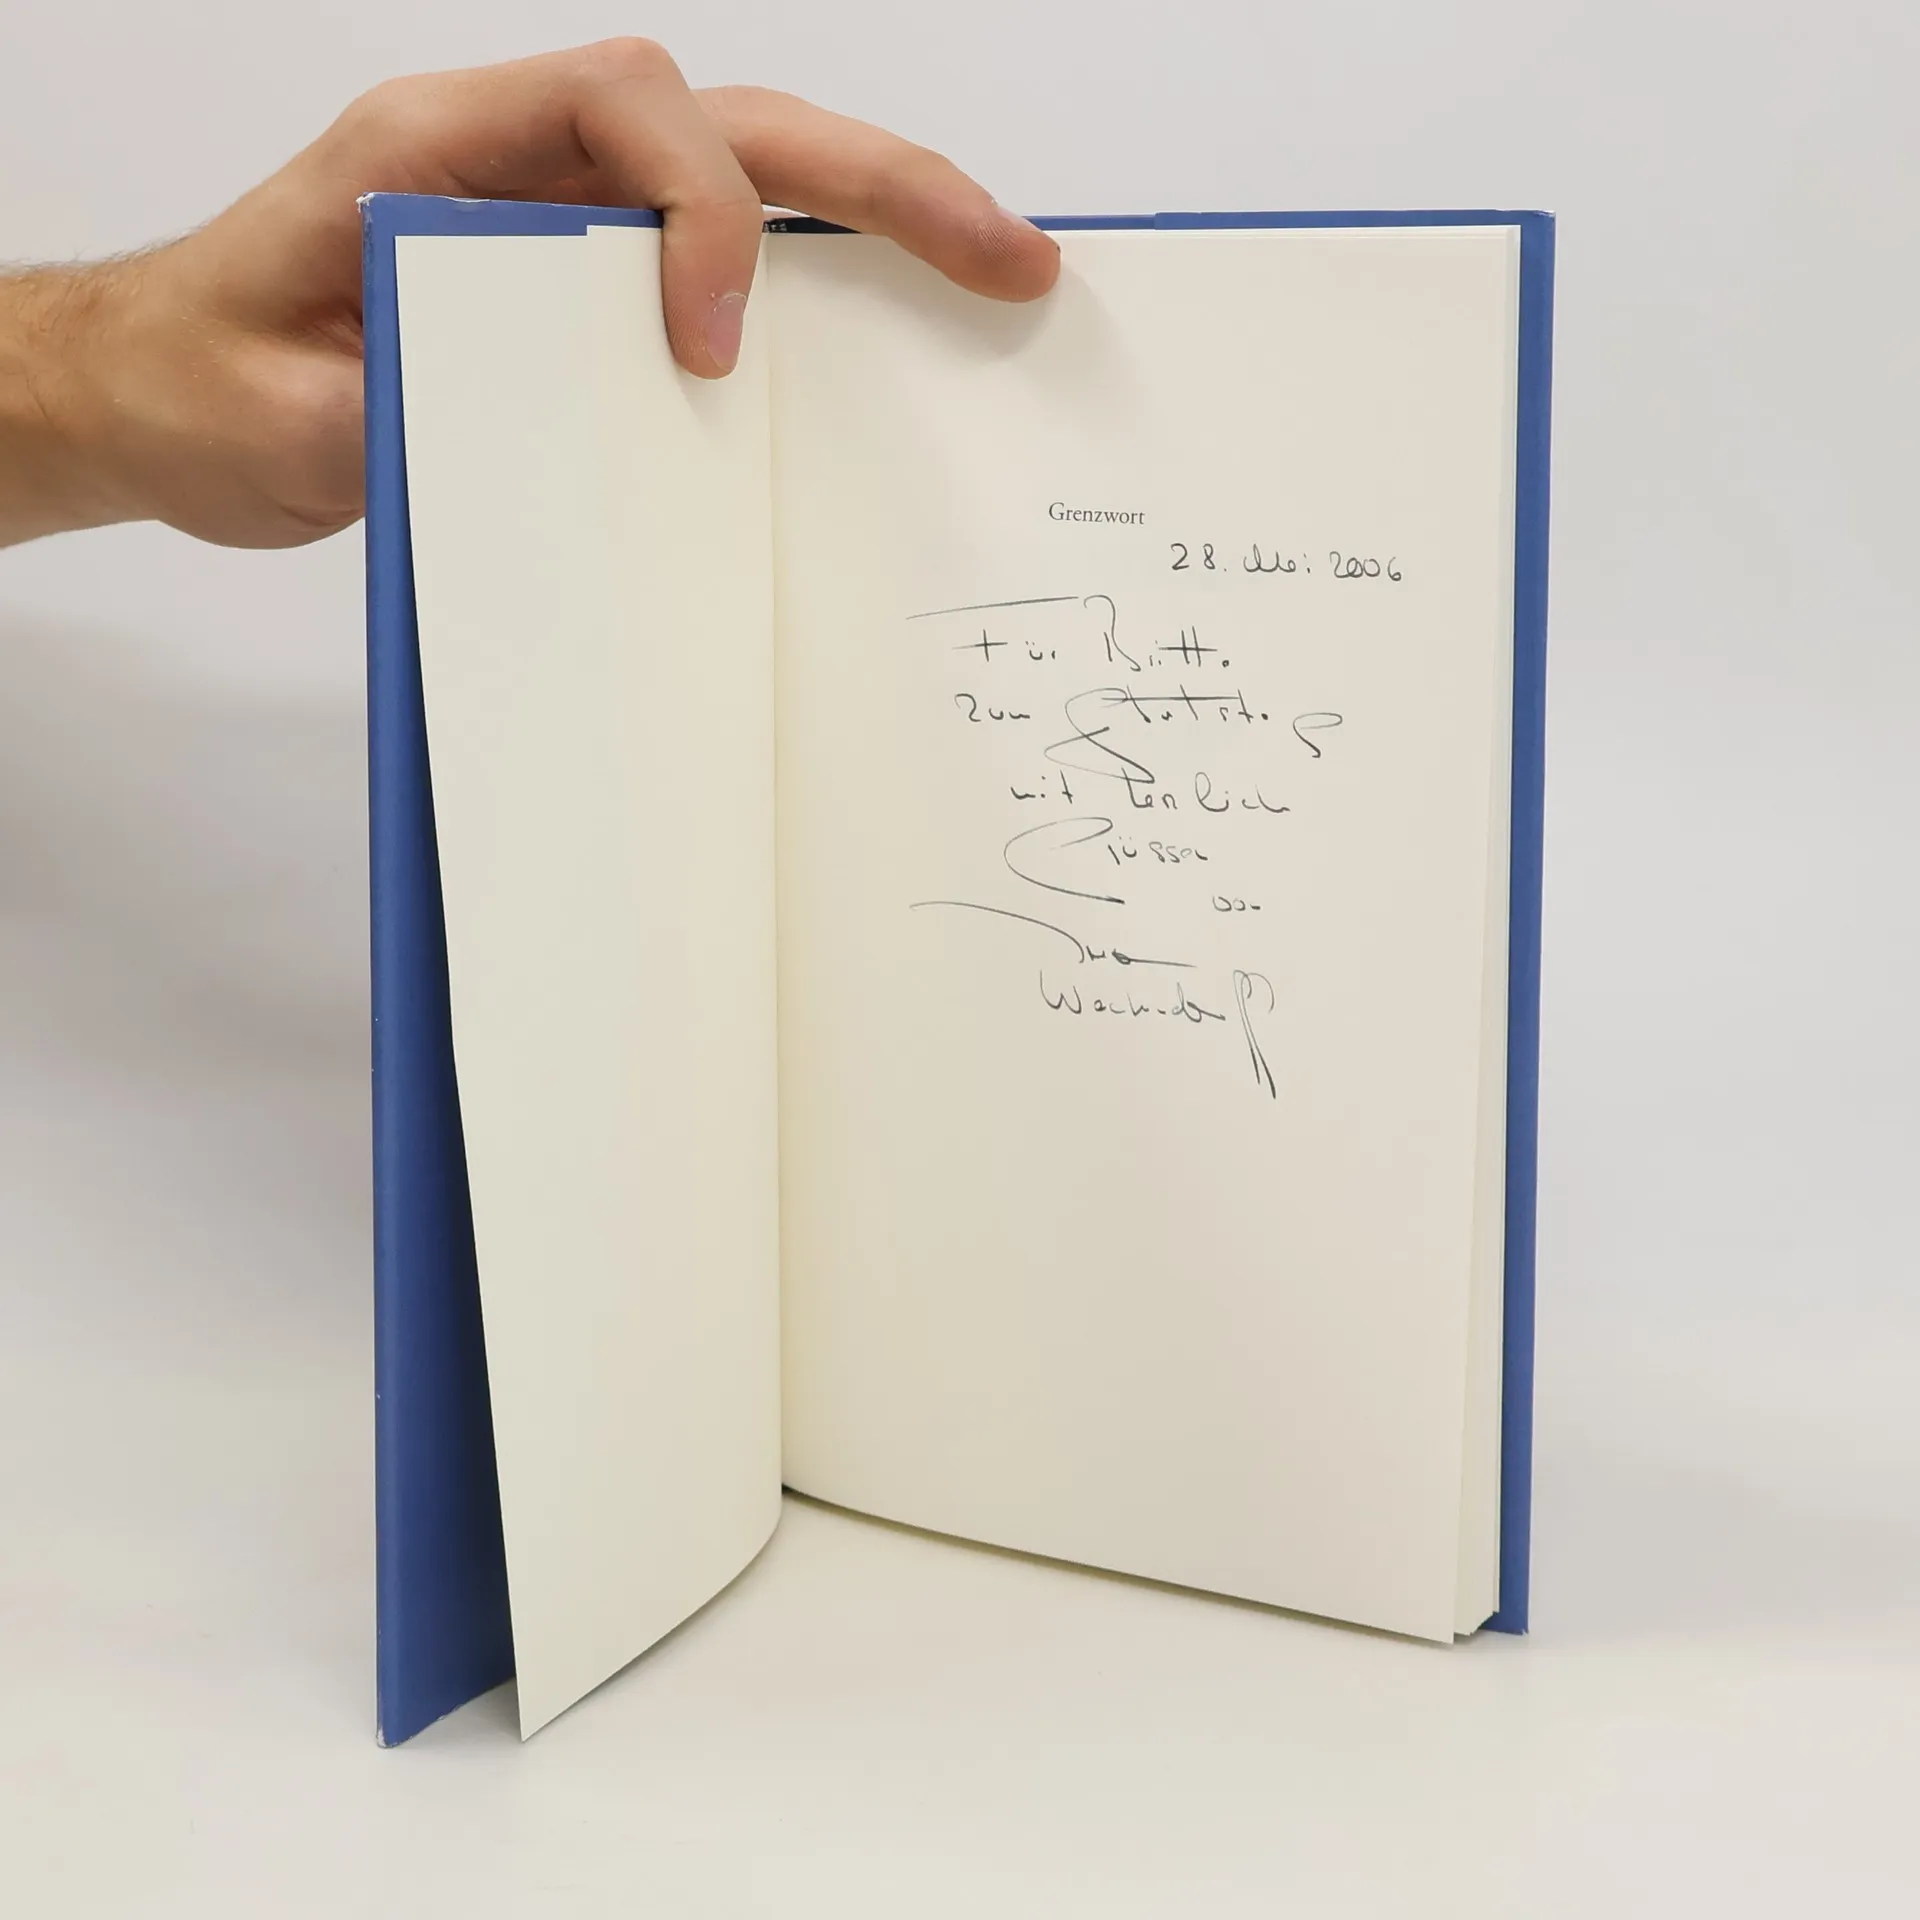 Grenzwort
28. Mai 2006
Für Britta
zum Geburtstag
mit herzlichen
Grüssen
von
Wachendorff